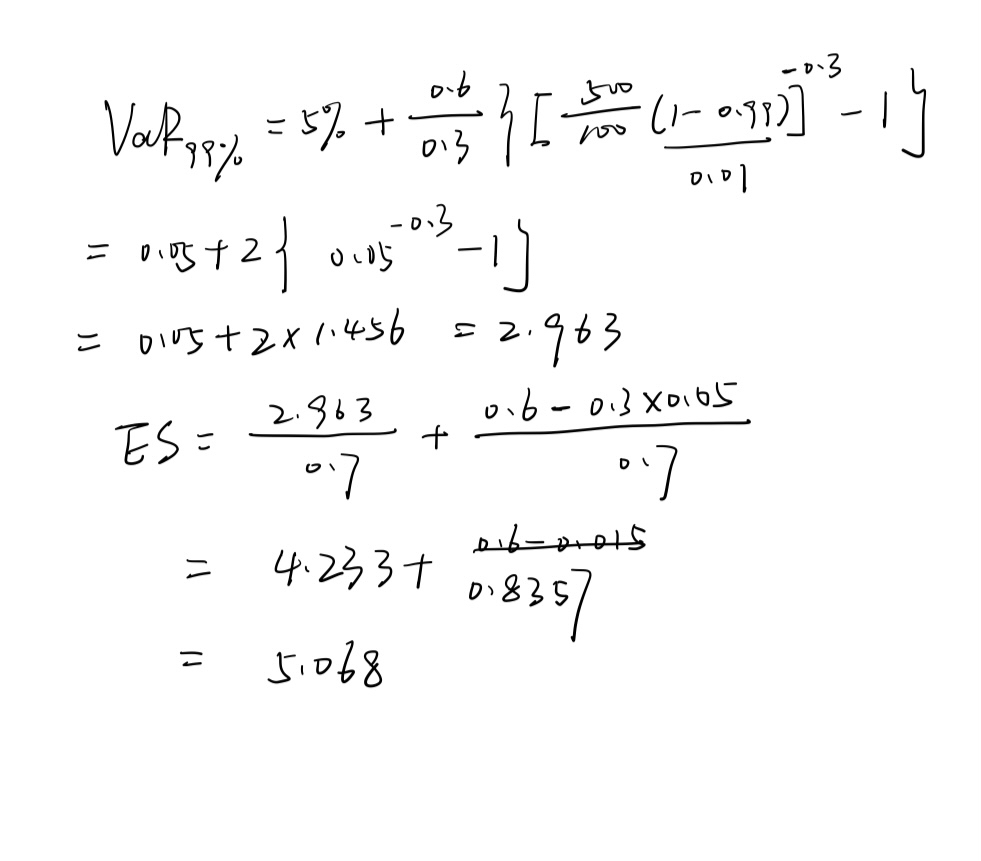 VaR99% = 5% + 0.6/0.3 { [ 500/100 (1 - 0.99) ]^-0.3 - 1 }
0.01
= 0.05 + 2 { 0.05^-0.3 - 1 }
= 0.05 + 2 × 1.456 = 2.963
ES = 2.963/0.7 + (0.6 - 0.3 × 0.05)/0.7
0.6 - 0.015
= 4.233 + 0.8357
= 5.068